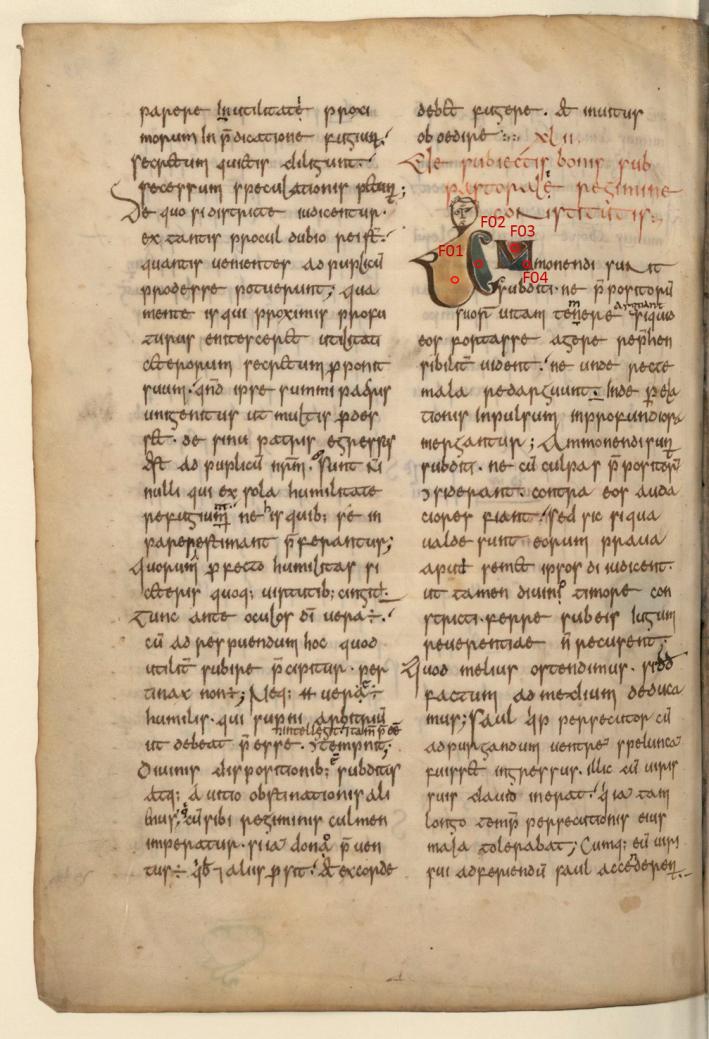 parere In utilitate proxi
morum In p̄dicatione fugiun.
secretum quietis diligunt.
secessum speculationis petun̄;
De quo si districte iudicentur.
ex tantis procul dubio rei st̄.
quantis venientes ad puplicū
prodesse potuerunt; qua
mente is qui proximis profu
turus enitesceret utilitati
ceterorum secretum p̄ponit
suum. qn̄d ipse summi patris
unigenitus ut multis pdes
set. de sinu patris egressus
est ad puplicū nrm̄. Sunt
nulli qui ex sola humilitate
refugiun ne his quib; se in
pares estimant p̄ferantur;
quorum pfecto humilitas si
ceteris quoq; virtutib; cingit.
Tunc ante oculos dī vera ÷
cū ad respuendum hoc quod
utilit subire p̄cipitur. per
tinax non ÷; Neq; vera ÷
humilis. qui superni arbitriū
intellegit
ut debeat p̄esse. temnit;
Divinis dispositionib; subditus
atq; a vitio obstinationis ali
enus. cū sibi regiminis culmen
imperatur. si ia donis p̄ven
tus ÷ qb; 7 aliis psit. & excorde
debet fugere. & invitus
oboedire:. xl ii.
De subiectis bonis sub
pastorale regimine
constitutis:.
F01 F02 F03 F04
Ammonendi sunt
subditi. ne p̄positorū
suor vitam temere siquid
eos portasse agere rephen
sibilit vident. ne unde recte
mala redarguunt. Inde p ela
tionis Inpulsum inprofundiora
mergantur; Ammonendi sun
subditi. ne cū culpas p̄positorū
ɔsiderant. contra eos auda
ciores fiant. sed sic si qua
valde sunt eorum prava
apud semet ipsos diiudicent.
ut tamen divino timore con
stricti. ferre sub eis Iugum
reverentiae n̄ recusent;
Quod melius ostendimus. si dd
factum ad medium deduca
mus; Saul qp persecutor cū
ad purgandum ventrē spelunca
fuisset ingressus. illic cū viris
suis david inerat. qia tam
longo temp̄ persecutionis eius
mala tolerabat; Cumq; eū viri
sui adferiendū saul accederen.